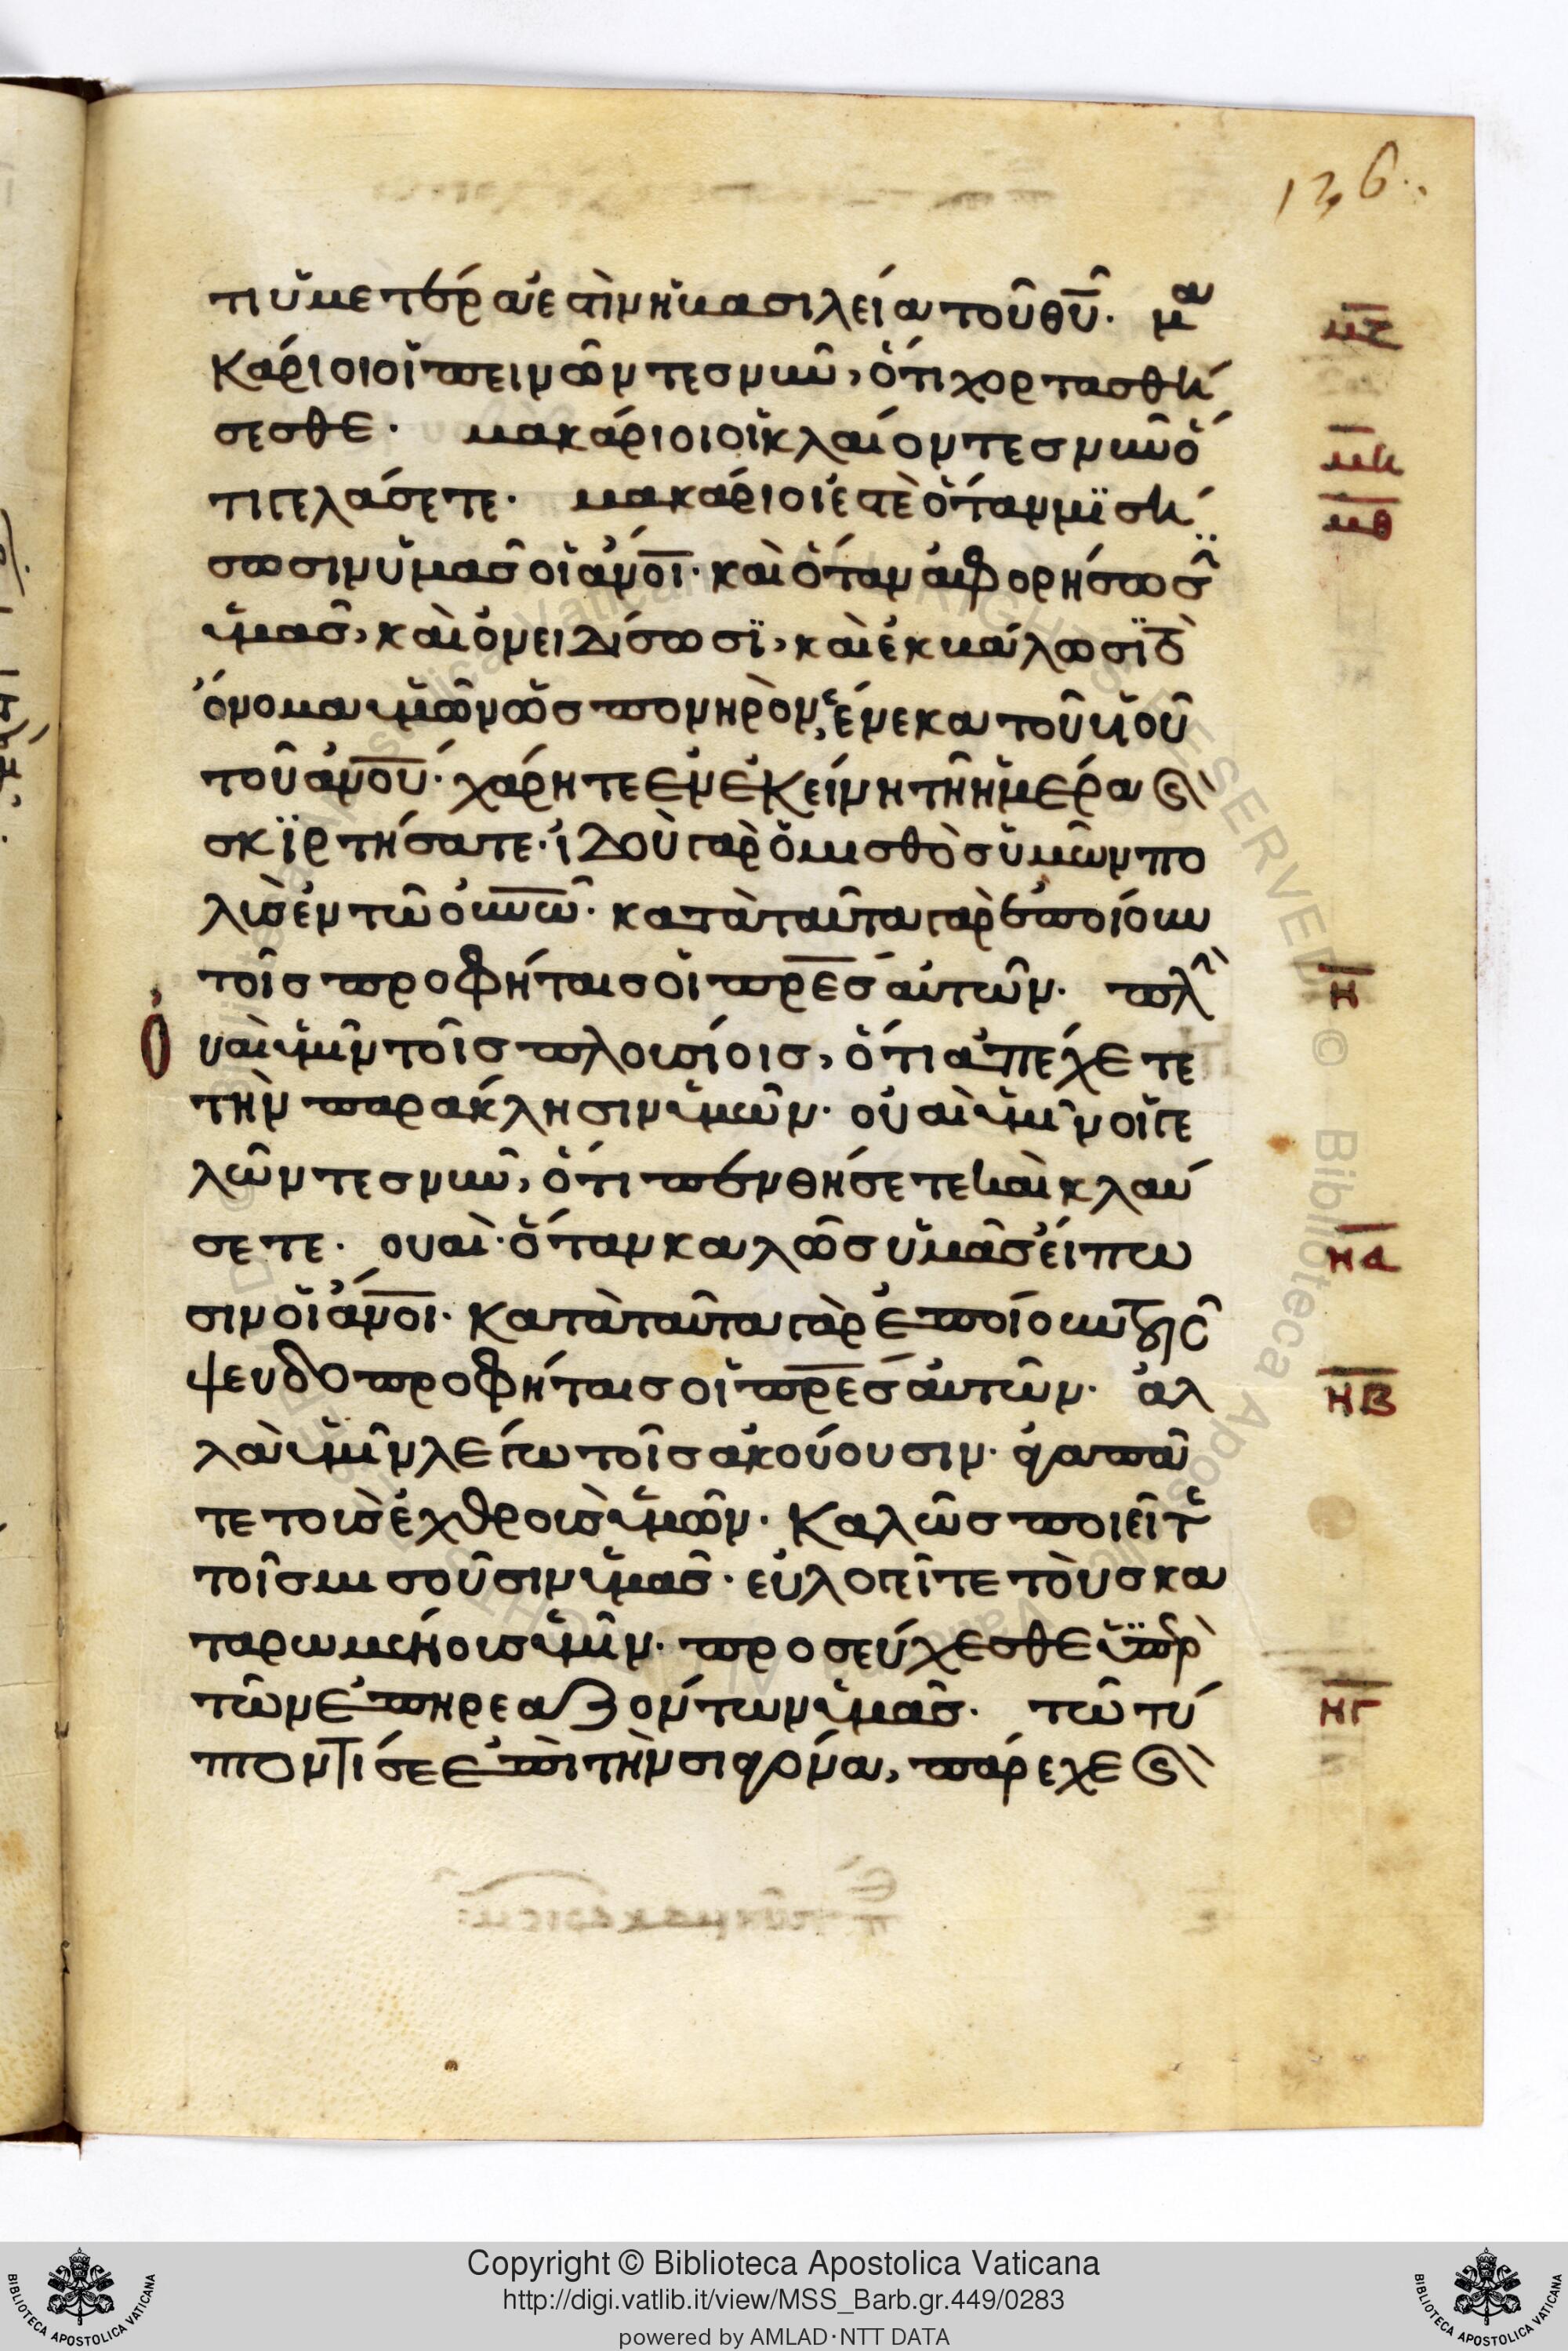 136
τι ὑμετέρα ἐστὶν ἡ βασιλεία τοῦ θυ̅. μα
κάριοι οἱ πεινῶντες νῦν, ὅτι χορτασθή
σεσθε. μακάριοι οἱ κλαίοντες νῦν ὅ
τι γελάσετε. μακάριοι ἐστὲ ὅταν μισή
σωσιν ὑμᾶς οἱ ἄνο̅ι̅. καὶ ὅταν ἀφορήσωσϊ
ὑμᾶς, καὶ ὀνειδίσωσϊ, καὶ ἐκβάλωσϊ τὸ
ὄνομα ὑμῶν ὡς πονηρὸν, ἕνεκα τοῦ υἱοῦ
τοῦ ἀνο̅υ̅. χάρητε ἐν ἐκείνη τῆ ἡμέρα ϗ
σκϊρτήσατε. ἰδοὺ γὰρ ὁ μισθὸς ὑμῶν πο
λὺς ἐν τῶ οὐνω̅. κατὰ ταῦτα γὰρ ἐποίουν
τοῖς προφήταις οἱ πρε̅ς αὐτῶν. πλὴ
Οὐαὶ ὑμῖν τοῖς πλουσίοις, ὅτι ἀπέχετε
τὴν παράκλησιν ὑμῶν. οὐαὶ ὑμῖν οἱ γε
λῶντες νῦν, ὅτι πενθήσετε καὶ κλαύ
σετε. ουαὶ. ὅταν καλῶς ὑμᾶς εἴπω
σιν οἱ ἄνο̅ι̅. κατὰ ταῦτα γὰρ ἐποίουν τοῖς
ψευδοπροφήταις οἱ πρε̅ς αὐτῶν. ἀλ
λὰ ὑμῖν λέγω τοῖς ἀκούουσιν. ἀγαπᾶ
τε τοὺς ἐχθροὺς ὑμῶν. καλῶς ποιεῖτε
τοῖς μισοῦσιν ὑμᾶς. εὐλογεῖτε τοὺς κα
ταρωμένους ὑμῖν. προσεύχεσθε ὑπὲρ
τῶν ἐπηρεαζόντων ὑμᾶς. τῶ τύ
πτοντί σε ἐπὶ τὴν σιαγόνα, πάρεχε ϗ
μζ
μη
μθ
ν
να
νβ
νγ
Copyright © Biblioteca Apostolica Vaticana
http://digi.vatlib.it/view/MSS_Barb.gr.449/0283
powered by AMLAD·NTT DATA
BIBLIOTECA APOSTOLICA VATICANA
BIBLIOTECA APOSTOLICA VATICANA